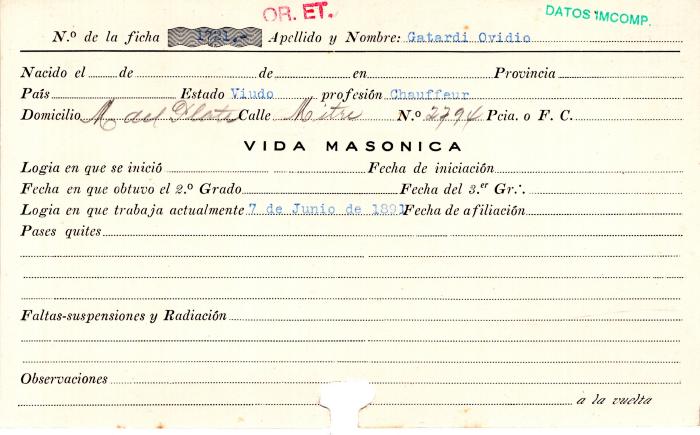 OR. ET.
DATOS IMCOMP.
N.º de la ficha 1721.- Apellido y Nombre: Gatardi Ovidio
Nacido el de de en Provincia
País Estado Viudo profesión Chauffeur
Domicilio M del Plata Calle Mitre N.º 2794 Pcia. o F. C.
VIDA MASONICA
Logia en que se inició Fecha de iniciación
Fecha en que obtuvo el 2.º Grado Fecha del 3.er Gr∴
Logia en que trabaja actualmente 7 de Junio de 1891 Fecha de afiliación
Pases quites
Faltas-suspensiones y Radiación
Observaciones
a la vuelta